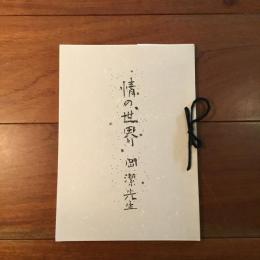 情の世界 岡潔先生